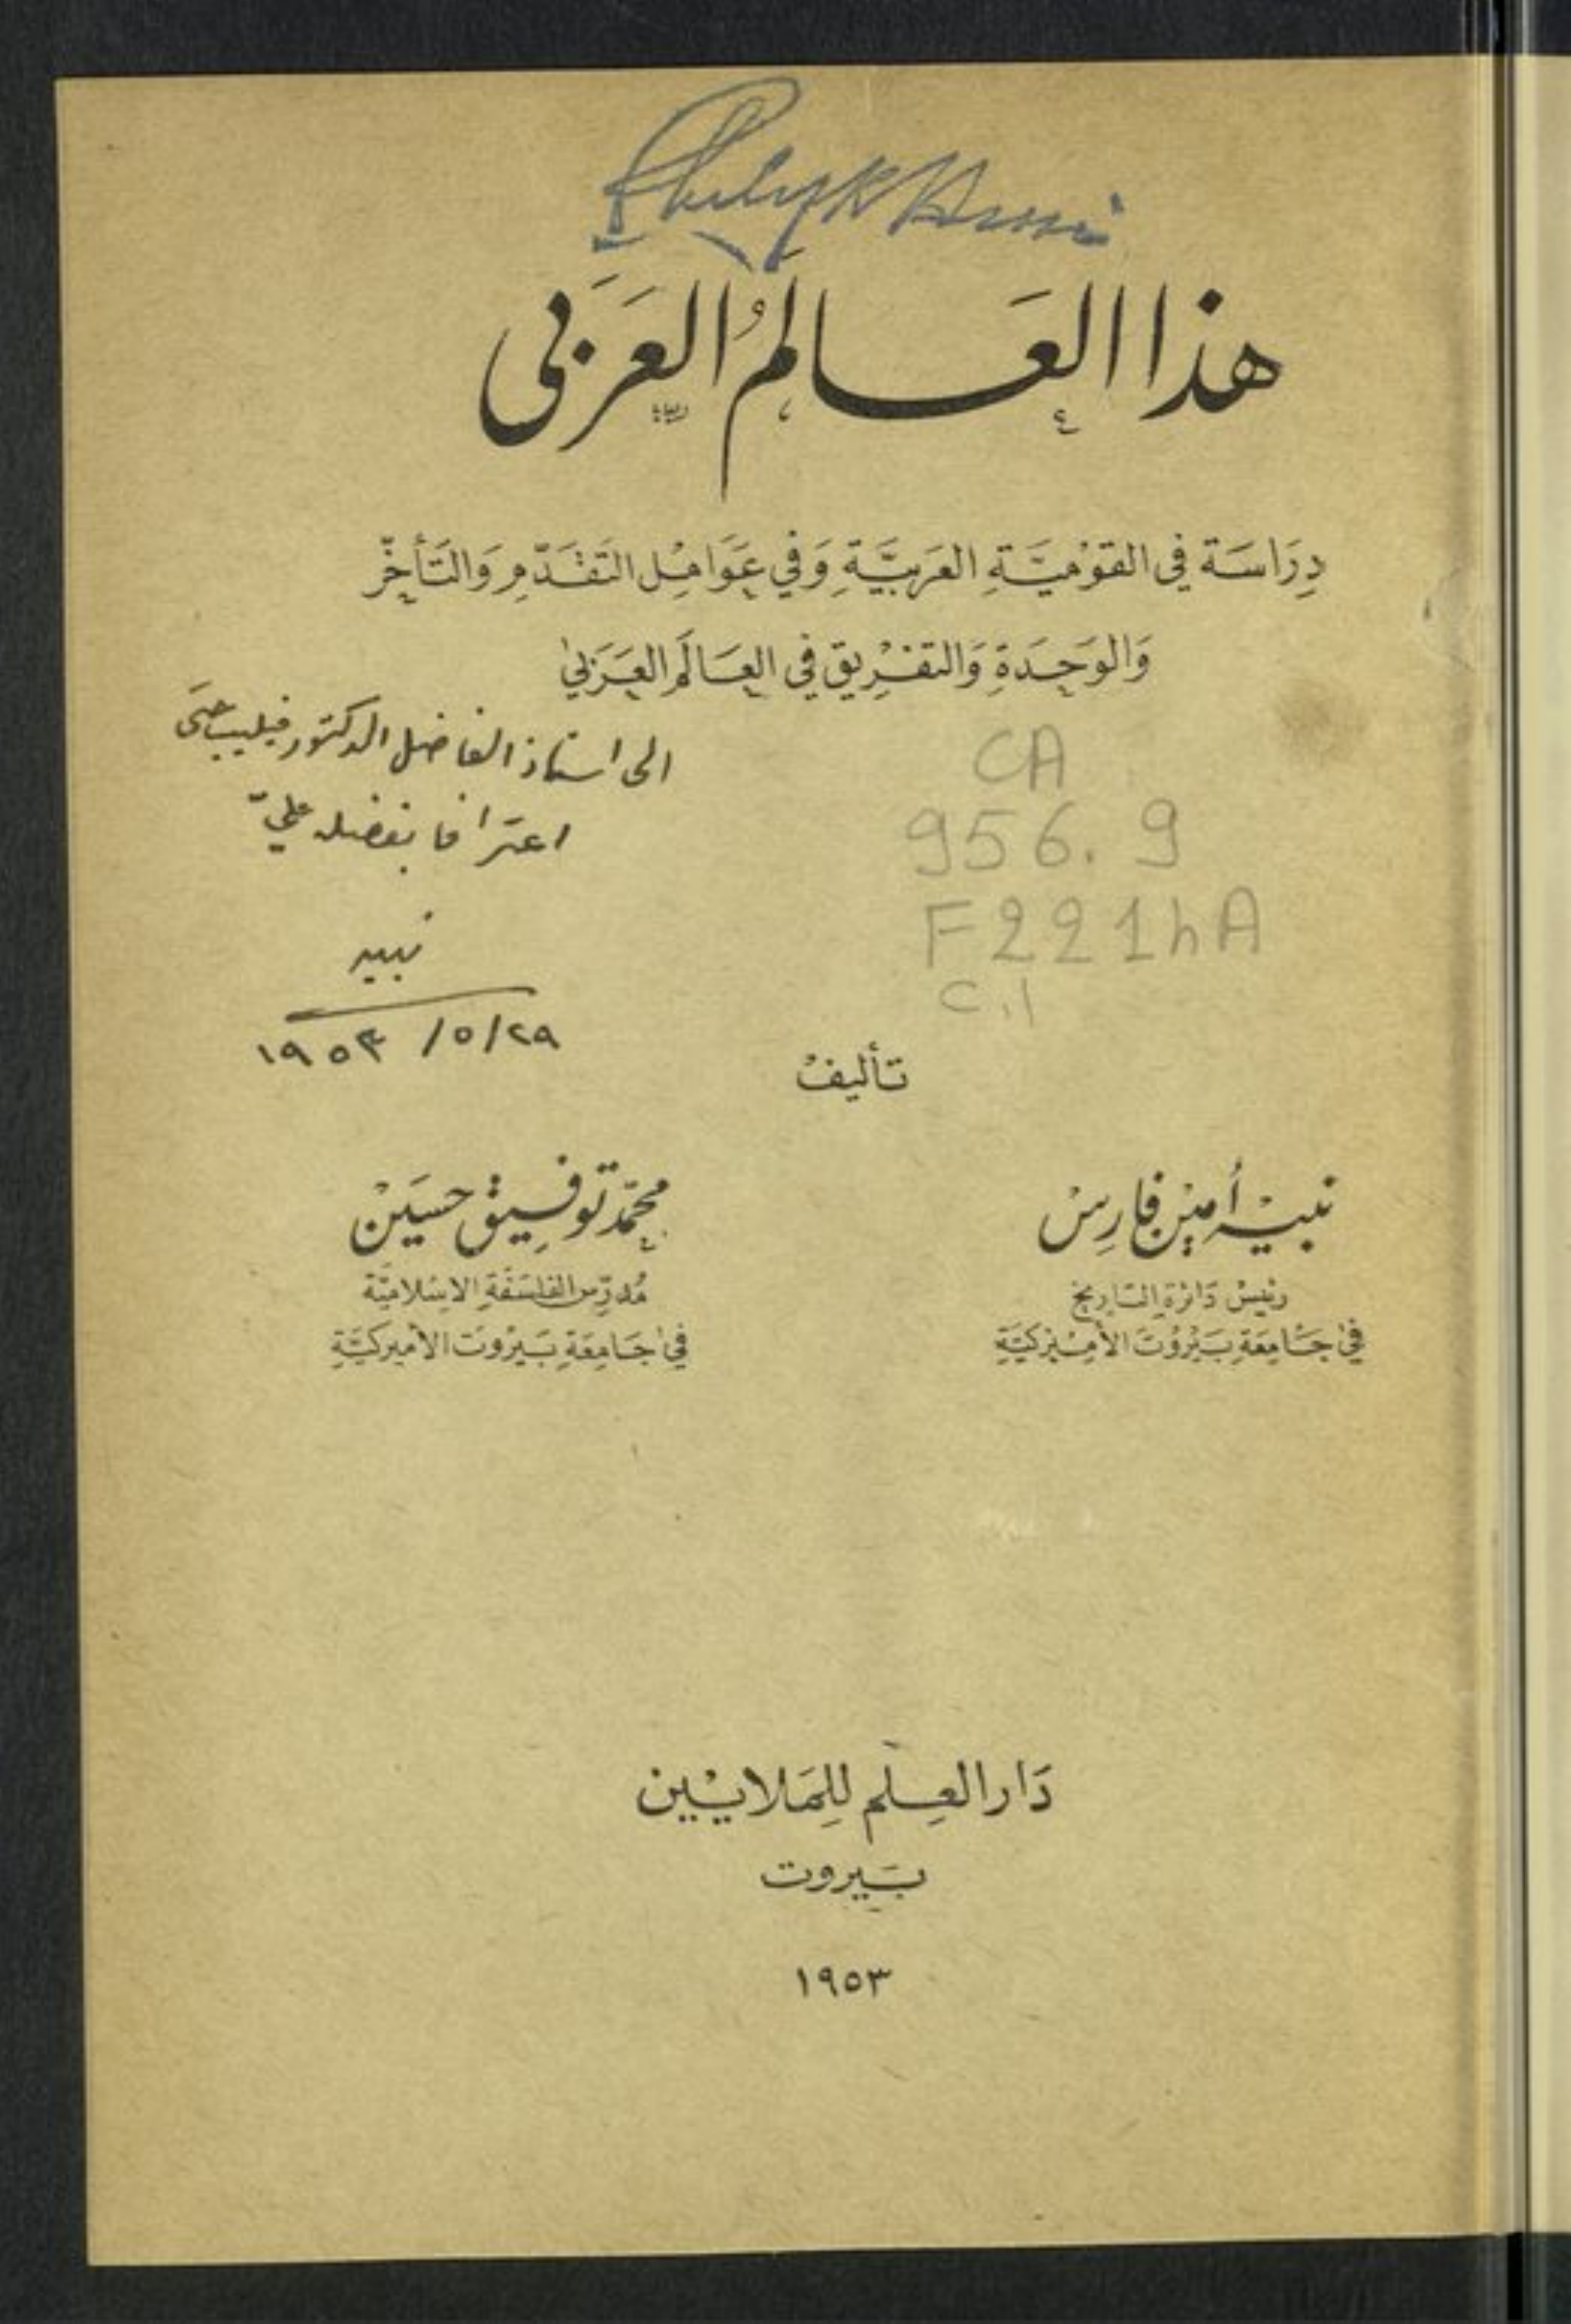 Philip K Hitti
هذا العَالمُ العَرَبي
دِرَاسَة في القَوْميَّةِ العَرَبيَّةِ وَفي عَوَامِل التَقَدّمِ وَالتَأخّر
وَالوَحدَةِ وَالتفْرِيق في العَالَم العَرَبي
الى استاذ الفاضل الدكتور فيليب حتى
اعترافا بفضله عليّ
نبيه
٢٩/٥/ ١٩٥٣
CA
956.9
F221hA
C.1
تأليفْ
نبيْه أمينْ فارِسْ
رئيسْ دَائرة التاريخ
في جَامِعَةِ بَيْرُوْتَ الأمِيْركيَّةِ
محمّد توفيق حسَينْ
مُدرّس الفلسَفَةِ الاسْلاميَّة
في جَامِعَةِ بَيْروتَ الأميركيَّةِ
دَار العِلم لِلمَلايْين
بَيروت
١٩٥٣